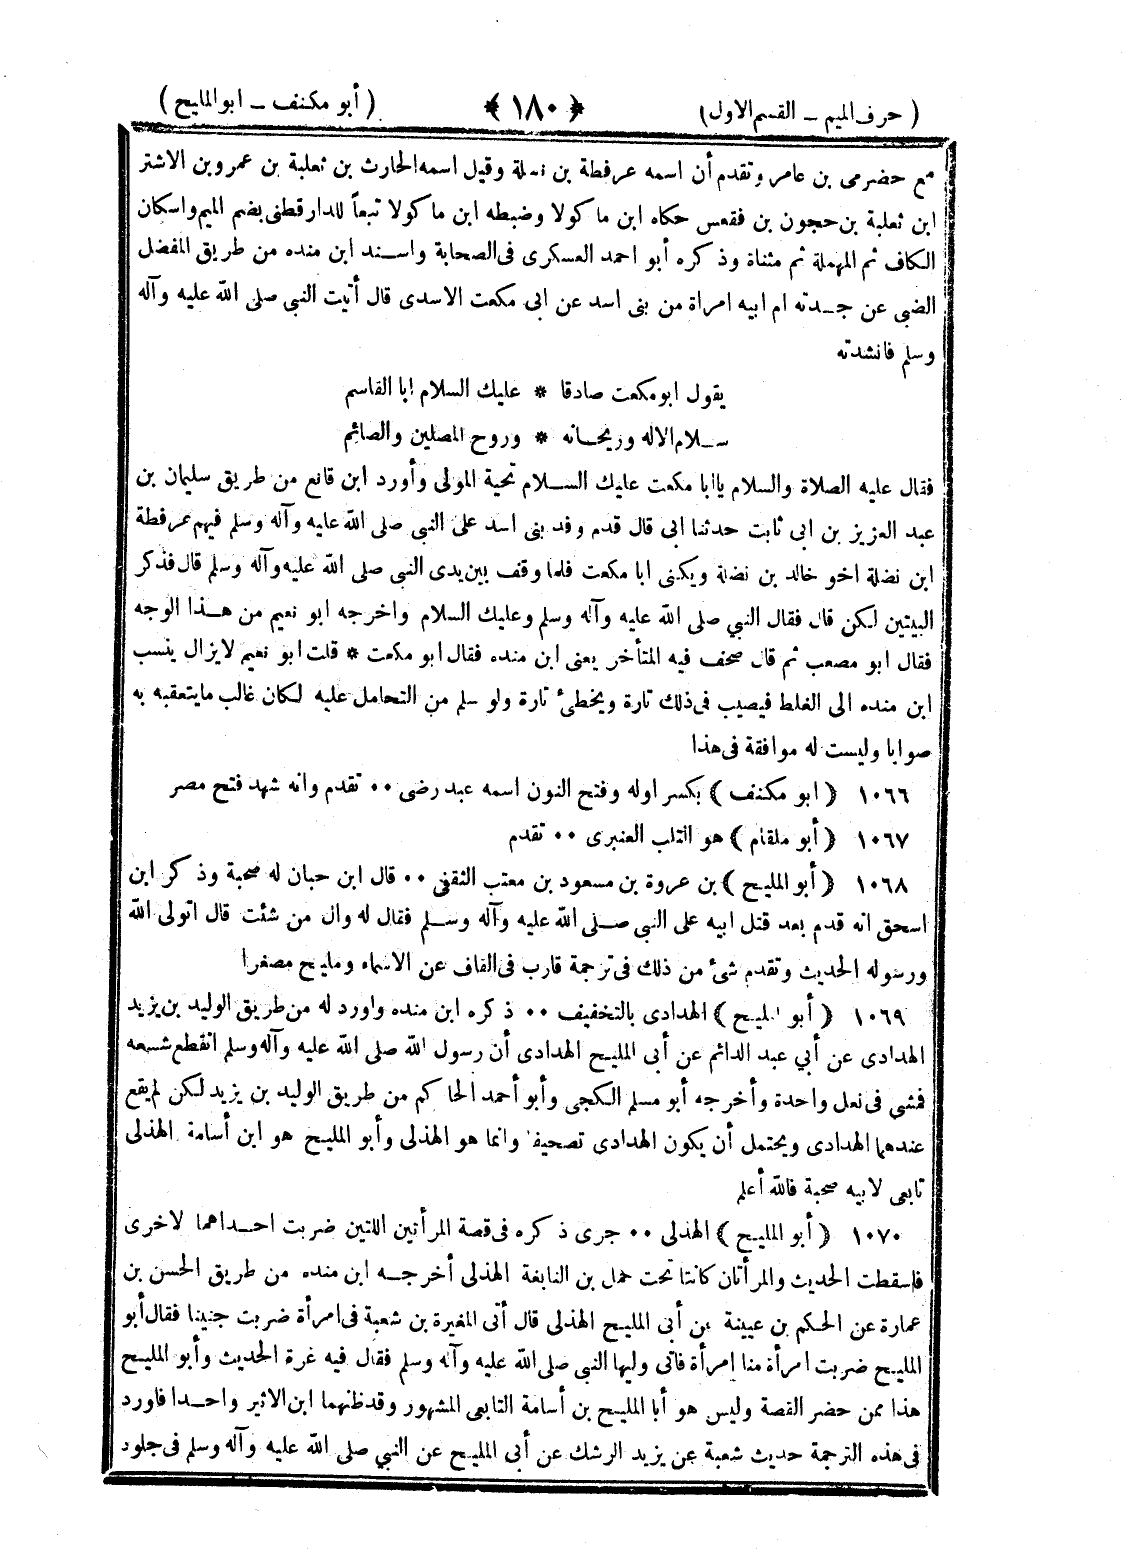 ( حرف الميم ــ القسم الاول) ﴿ ١٨٠ ﴾ ( أبو مكنف ــ ابو المليح )
مع حضرمى بن عامر وتقدم أن اسمه عرفطة بن نضلة وقيل اسمه الحارث بن ثعلبة بن عمرو بن الاشتر
ابن ثعلبة بن حجون بن فقعس حكاه ابن ماكولا وضبطه ابن ماكولا تبعاً للدارقطنى بضم الميم واسكان
الكاف ثم المهملة ثم مثناة وذكره أبو احمد العسكرى فى الصحابة واسـند ابن منده من طريق المفضل
الضبى عن جـدته ام ابيه امراة من بنى اسد عن ابى مكعت الاسدى قال أتيت النبى صلى الله عليه وآله
وسلم فانشدته
يقول ابو مكعت صادقا * عليك السلام ابا القاسم
سـلام الاله وريحـانه * وروح المصلين والصائم
فقال عليه الصلاة والسلام ياابا مكعت عليك السـلام تحية الموتى وأورد ابن قانع من طريق سليمان بن
عبد العزيز بن ابى ثابت حدثنا ابى قال قدم وفد بنى اسد على النبى صلى الله عليه وآله وسلم فيهم عرفطة
ابن نضلة اخو خالد بن نضلة ويكنى ابا مكعت فلما وقف بين يدى النبى صلى الله عليه وآله وسلم قال فذكر
البيتين لكن قال فقال النبي صلى الله عليه وآله وسلم وعليك السلام واخرجه ابو نعيم من هـذا الوجه
فقال ابو مصعب ثم قال صحف فيه المتأخر يعنى ابن منده فقال ابو مكعت * قلت ابو نعيم لايزال ينسب
ابن منده الى الغلط فيصيب فى ذلك تارة ويخطئ تارة ولو سلم من التحامل عليه لكان غالب مايتعقبه به
صوابا وليست له موافقة فى هذا
١٠٦٦ ﴿ ابو مكنف ﴾ بكسر اوله وفتح النون اسمه عبد رضى ٠٠ تقدم وانه شهد فتح مصر
١٠٦٧ ﴿ أبو ملقام ﴾ هو التلب العنبرى ٠٠ تقدم
١٠٦٨ ﴿ أبو المليح ﴾ بن عروة بن مسعود بن معتب الثقفى ٠٠ قال ابن حبان له صحبة وذكر ابن
اسحق انه قدم بعد قتل ابيه على النبي صـلى الله عليه وآله وسـلم فقال له وال من شئت قال اتولى الله
ورسوله الحديث وتقدم شئ من ذلك فى ترجمة قارب فى القاف عن الاسماء ومليح مصغرا
١٠٦٩ ﴿ أبو المليح ﴾ الهدادى بالتخفيف ٠٠ ذكره ابن منده واورد له من طريق الوليد بن يزيد
الهدادى عن أبي عبد الدائم عن أبى المليح الهدادى أن رسول الله صلى الله عليه وآله وسلم انقطع شسعه
فمشى فى نعل واحدة وأخرجه أبو مسلم الكجى وأبو أحمد الحاكم من طريق الوليد بن يزيد لكن لم يقع
عندهما الهدادى ويحتمل أن يكون الهدادى تصحيفا وانما هو الهذلى وأبو المليح هو ابن أسامة الهذلى
تابعى لابيه صحبة فالله أعلم
١٠٧٠ ﴿ أبو المليح ﴾ الهذلى ٠٠ جرى ذكره فى قصة المرأتين اللتين ضربت احـداهما لاخرى
فاسقطت الحديث والمرأتان كانتا تحت حمل بن النابغة الهذلى أخرجـه ابن منده من طريق الحسن بن
عمارة عن الحكم بن عيينة عن أبى المليح الهذلى قال أتى المغيرة بن شعبة فى امرأة ضربت جنينا فقال أبو
المليح ضربت امرأة منا إمرأة فاتى وليها النبى صلى الله عليه وآله وسلم فقال فيه غرة الحديث وأبو المليح
هذا ممن حضر القصة وليس هو أبا المليح بن أسامة التابعى المشهور وقد ظنهما ابن الاثير واحـدا فاورد
فى هذه الترجمة حديث شعبة عن يزيد الرشك عن أبى المليح عن النبي صلى الله عليه وآله وسلم فى جلود